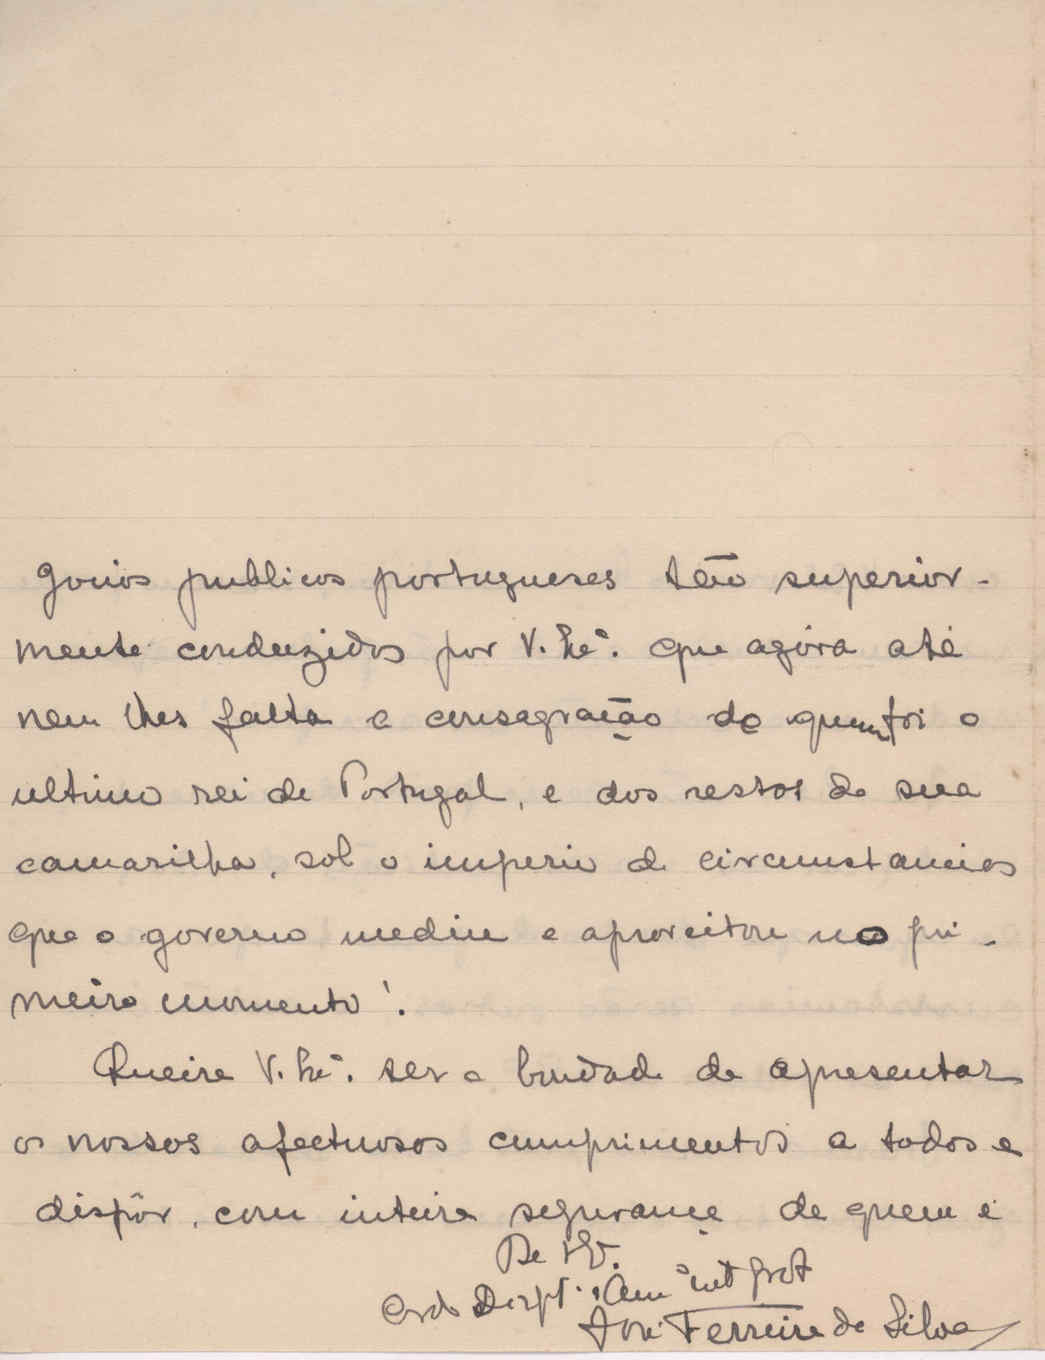 gocios publicos portugueses tão superior-
mente conduzidos por V. Exª. que agóra até
nem lhes falta a consagração de quem foi o
ultimo rei de Portugal, e dos restos de sua
camarilha, sob o imperio de circumstancias
que o governo mediu e aproveitou no pri-
meiro momento!
Queira V. Exª. ser a bondade de apresentar
os nossos afectuosos cumprimentos a todos e
dispôr, com inteira segurança de quem é
De V. Exª.
José Ferreira da Silva